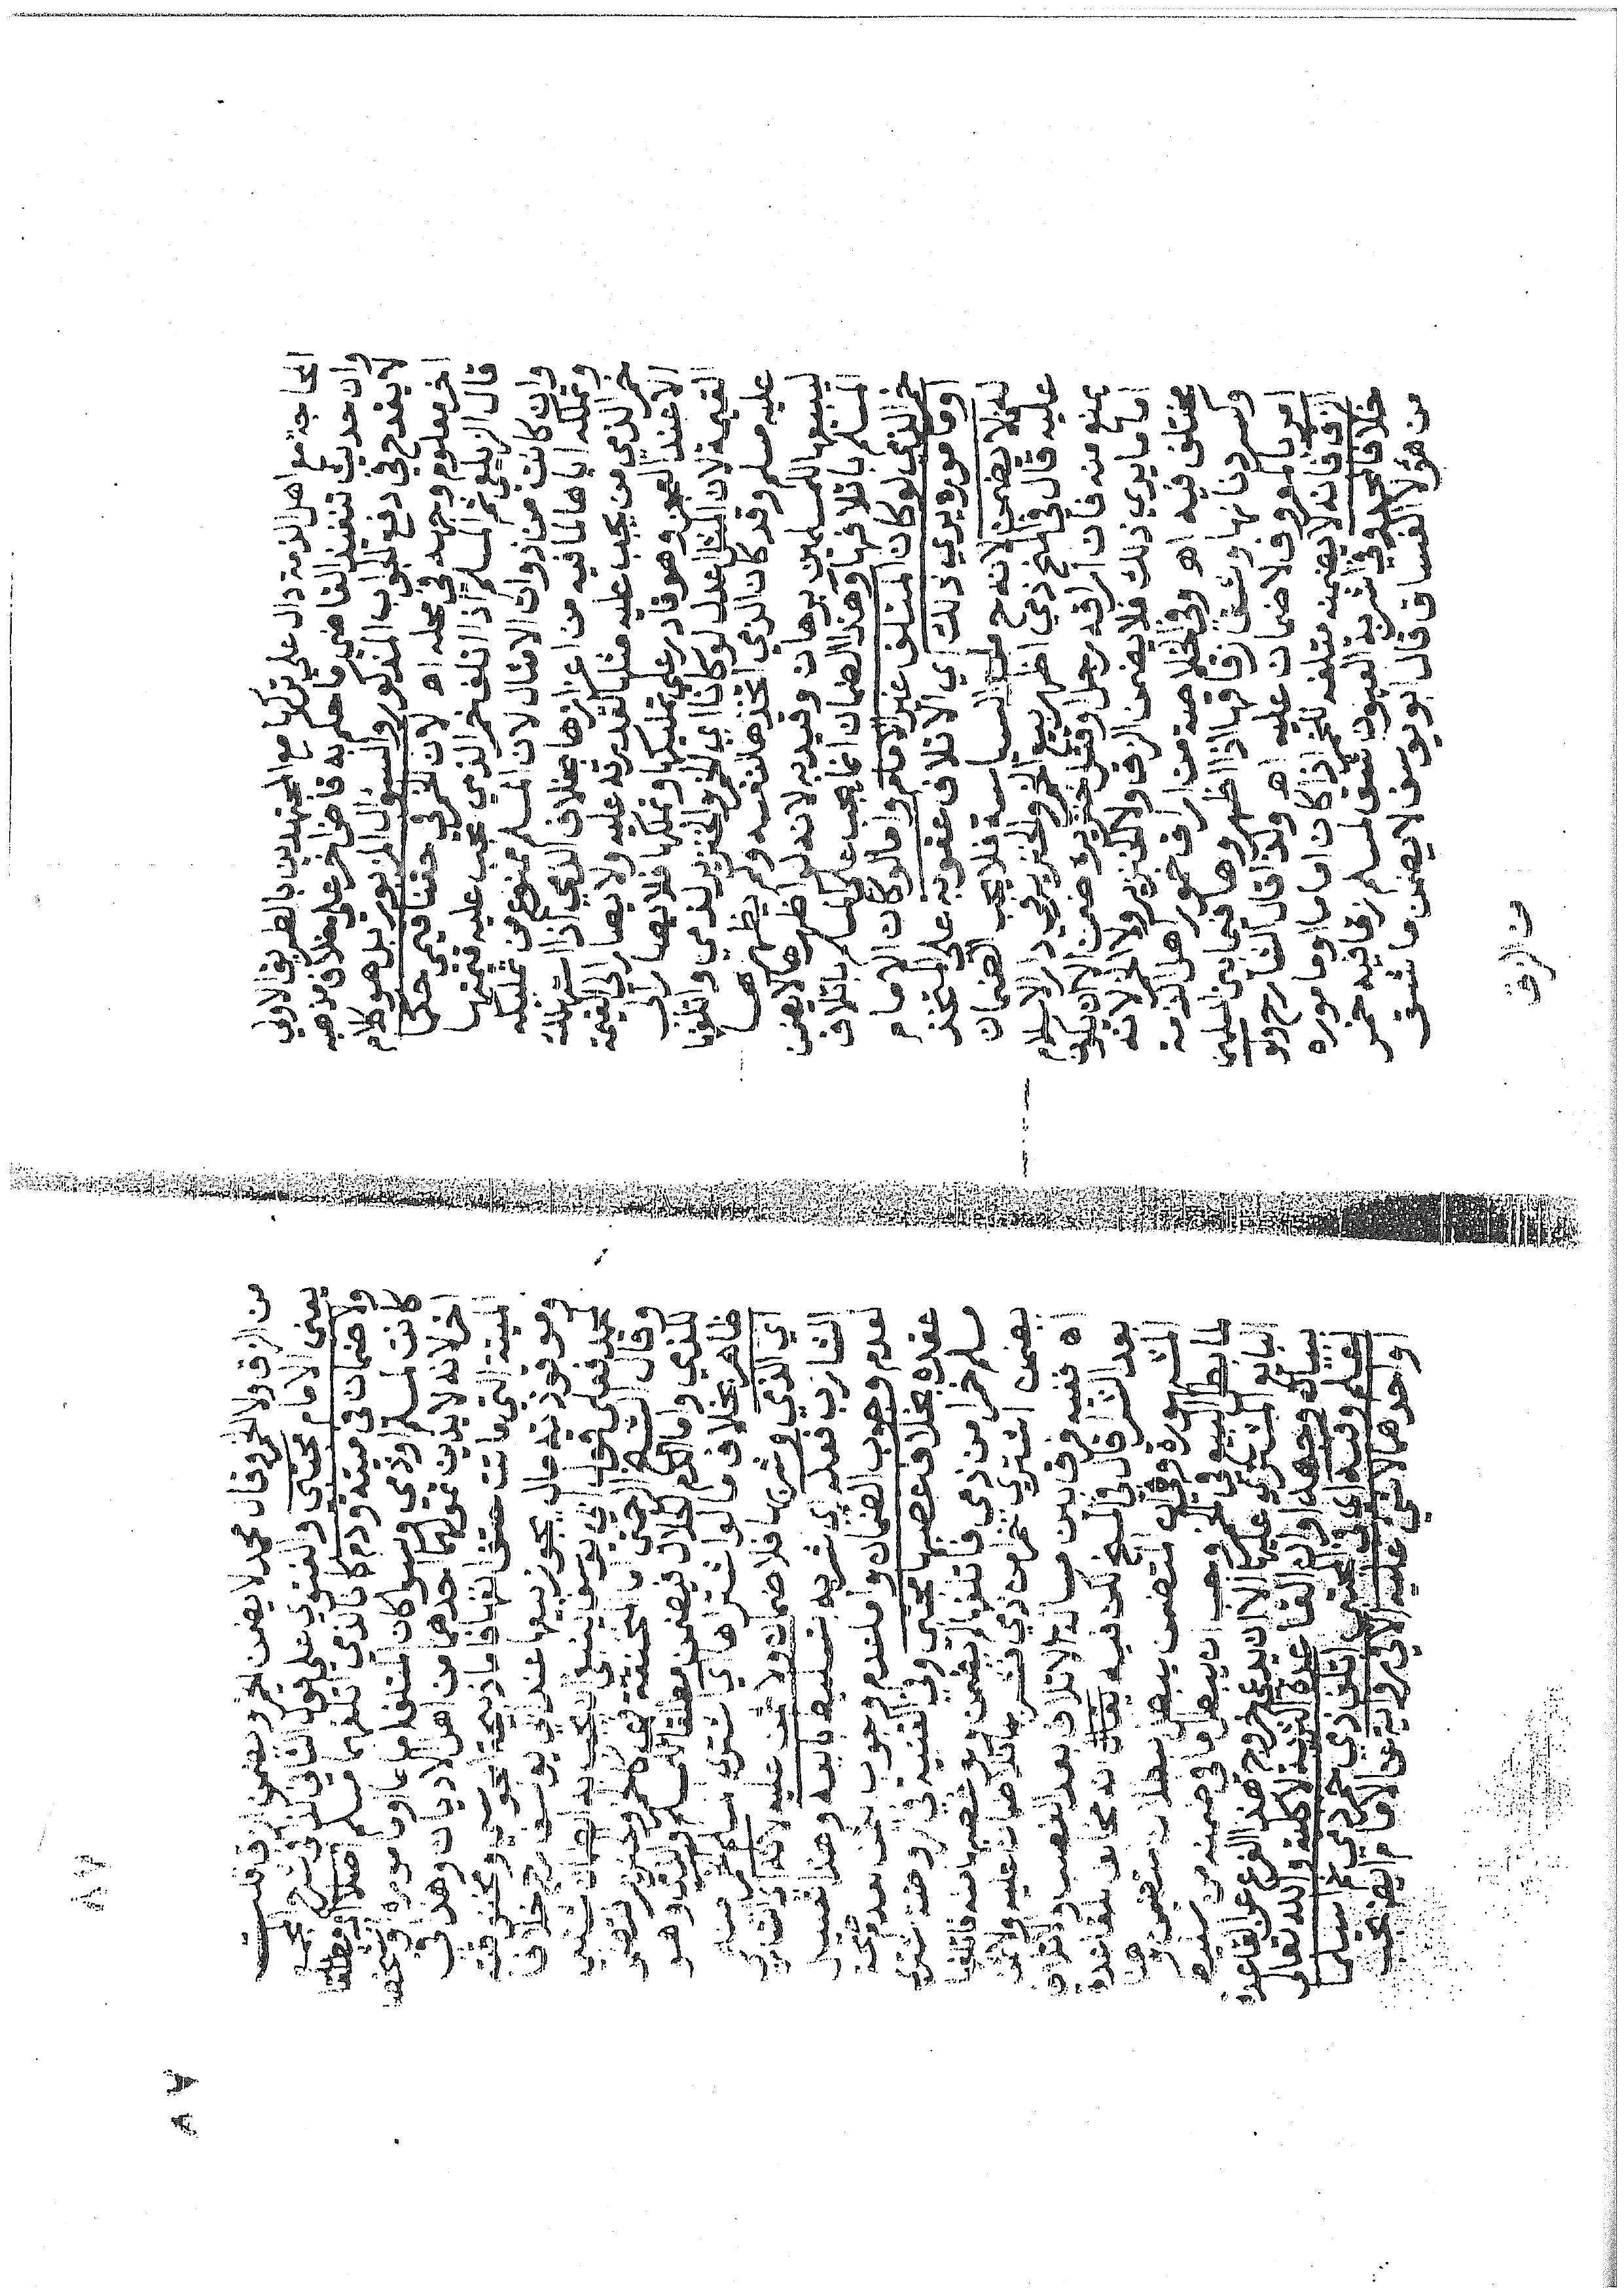 المحاجة مع اهل الذمة دال على تركها مع المجتهدين بالطريق الاولى
وان حديث تنفيذ القاضي ما حكم به قاض اخر على خلاف مذهبه
لا يقدح في دفع الجواب المذكور والسؤال المزبور بل هو كلام
اخر معلوم وجهه في محله اه لان الخمر في حقنا قيمي حكما
قال الزيلعي ثم المسلم اذا اتلف خمر الذمي يجب عليه قيمتها
وان كانت من ذوات الامثال لان المسلم ممنوع من تمليكه
وتملكه اياها لما فيه من اعزازها بخلاف الذمي اذا استهلك
خمر الذمي من يجب عليه مثلها لقدرته عليه ولا يصار الى القيمة
الا عند العجز وهو قادر على تمليكها وتملكها فلا يصار الى
القيمة لان المثل اعدل لو كانا اي الخمر والخنزير لذمي واتلفها
عليه مسلم وقد كان الذمي اتخذها لنفسه ولم يظهرها
لبيعها للمسلمين برهان وقيد به لانه لو اظهرها لا يضمن
المسلم باتلافها وهذا الضمان انما يجب على المسلم باتلاف
خمر الذمي لو كان المتلف غير الامام واما لو كان الامام
او مامورة ويرى ذلك اي الاتلاف عقوبة على المتخذ
له فلا يضمن لانه ح من السياسة فلا يجب الضمان
عليه قال في المنح ذمي اظهر بيع الخمر والخنزير في دار الاسلام
يمنع منه فان اراقه رجل او قتل خنزيره ضمن الا ان يكون
اماما يرى ذلك فلا يضمن الزق ولا الخنزير ولا الخمر لانه
مختلف فيه اه وفي الخلاصة من اراق خمور اهل الذمة
وكسر دنانها وشق زقاقها اذا اظهروها فيما بين المسلمين
امرا بالمعروف لا ضمان عليه اه وكذا قال الشارح ولو
الزق فانه لا يضمنه متلفه للخمر اذا كان اماما او ماموره
خلافا لمحمد وفي اشربة العيون شق لمسلم زقا فيه خمر
من هؤلا الفساق قال ابو يوسف لا يضمن ما شق
من الزق
من الزق ولا الخمر وقال محمد لا يضمن الخمر ويضمن الزق قلت
يعني الامام مجتبى والفتوى على قول الثاني للزق شرح المجمع
ولا ضمان في ميتة ودم كانا لذمي اتلفهما مسلم اصلا اي مطلقا
كانت لمسلم او ذمي وسوا كان المتلف اماما او ماموره او
اخر لانه لا يدين تمولهما احد من اهل الاديان وهذا في
الميتة التي ماتت حتف انفها فاما ذبيحة المجوسي ومخنوقته
وموقوذته مال يجوز بيعها عند ابي يوسف رح خلافا
لمحمد فعلى قول ابي يوسف ينبغي ان يجب به الضمان
وقال الشيخ الحنفي اما المخنقة فهي كالخمر والخنزير
للذمي واما الدم كحلال فيضمن مطلقا
ظاهر بخلاف ما لو اشتراها اي اشترى المسلم الخمر منه
اي الذمي وشربها فلا ضمان ولا ثمن عليه لانه اتلف
الشارب فعله اي شربه بتسليط بايعه وهذا تعليل
لعدم وجوب الضمان واما عدم وجوب الثمن بعدم صحة
عقده بخلاف غصبها مجتبى وفي القنية في روضة اشترى
مسلم خمرا من ذمي فاتلفها لم يضمن ولو غصبها منه فاتلفها
يضمن اشترى خمرا من ذمي فشربها فلا ضمان عليه ولا ثمن
اه ففيه فرق بين مسالة الاتلاف بعد الغصب والاتلاف
بعد الشرا قال في المنح لكن فيه يقال انه مخالف للقاعدة
المشهورة وهي ان المتضمن يبطل ببطلان متضمنه
لما بطل البيع في الخمر وجب ان يبطل ما في ضمنه من تسليط
البايع المشتري عليها الا ان يدعى خروج هذا الفرع عن القاعدة
ببيان وجه او ان القاعدة اكثرية لا كلية والله تعالى
اعلم وفيه اي في المجتبى اتلف ذمي خمر ذمي ثم اسلما
او احدهما لا شي عليه الا في رواية عن الامام
٨٧